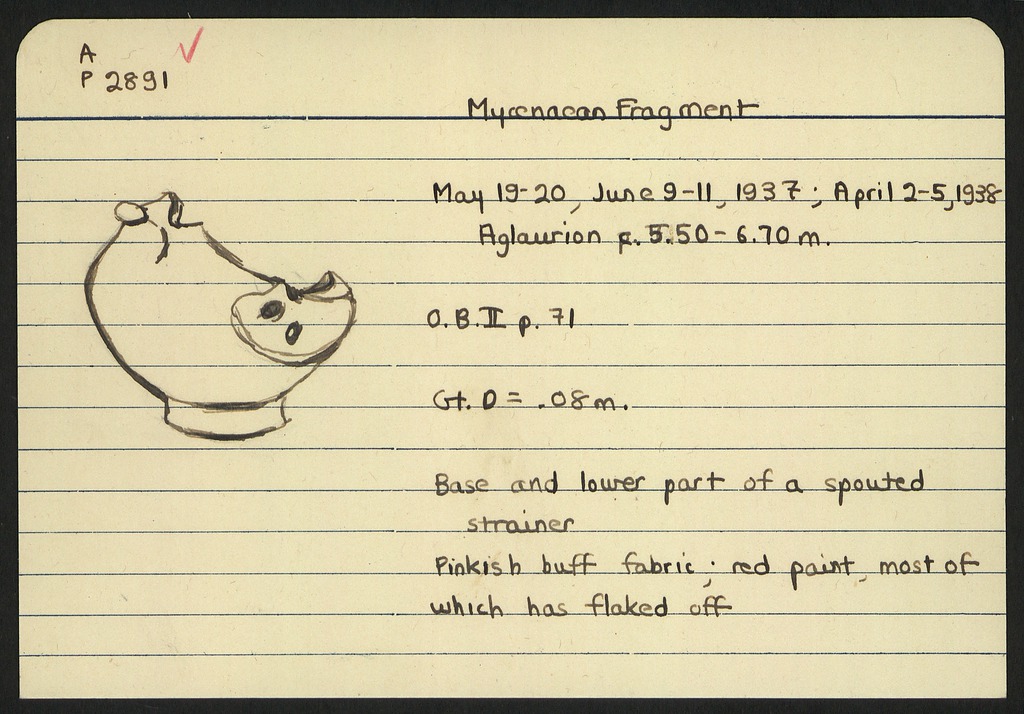 A
P 2891
Mycenaean Fragment
May 19-20, June 9-11, 1937; April 2-5, 1938
Aglaurion p. 5.50-6.70 m.
O.B. II p. 71
Gt. D = .08 m.
Base and lower part of a spouted
strainer
Pinkish buff fabric; red paint, most of
which has flaked off